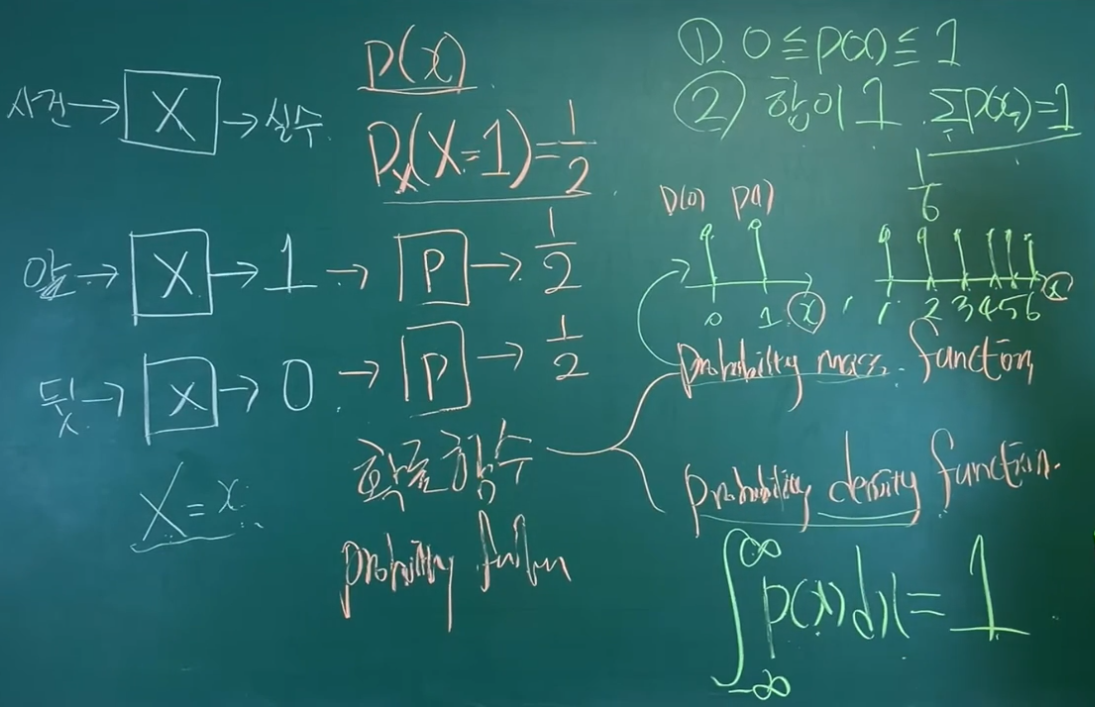 사건 → X → 실수
앞 → X → 1 → P → 1/2
뒷 → X → 0 → P → 1/2
X = x
P(x)
Pₓ(X=1)=1/2
확률함수
probability function
① 0 ≦ p(x) ≦ 1
② 합이 1 Σp(xᵢ)=1
1/6
p(0) p(1)
0 1 x , 1 2 3 4 5 6 x
probability mass function
probability density function.
∫_{-∞}^{∞} p(x)dx = 1